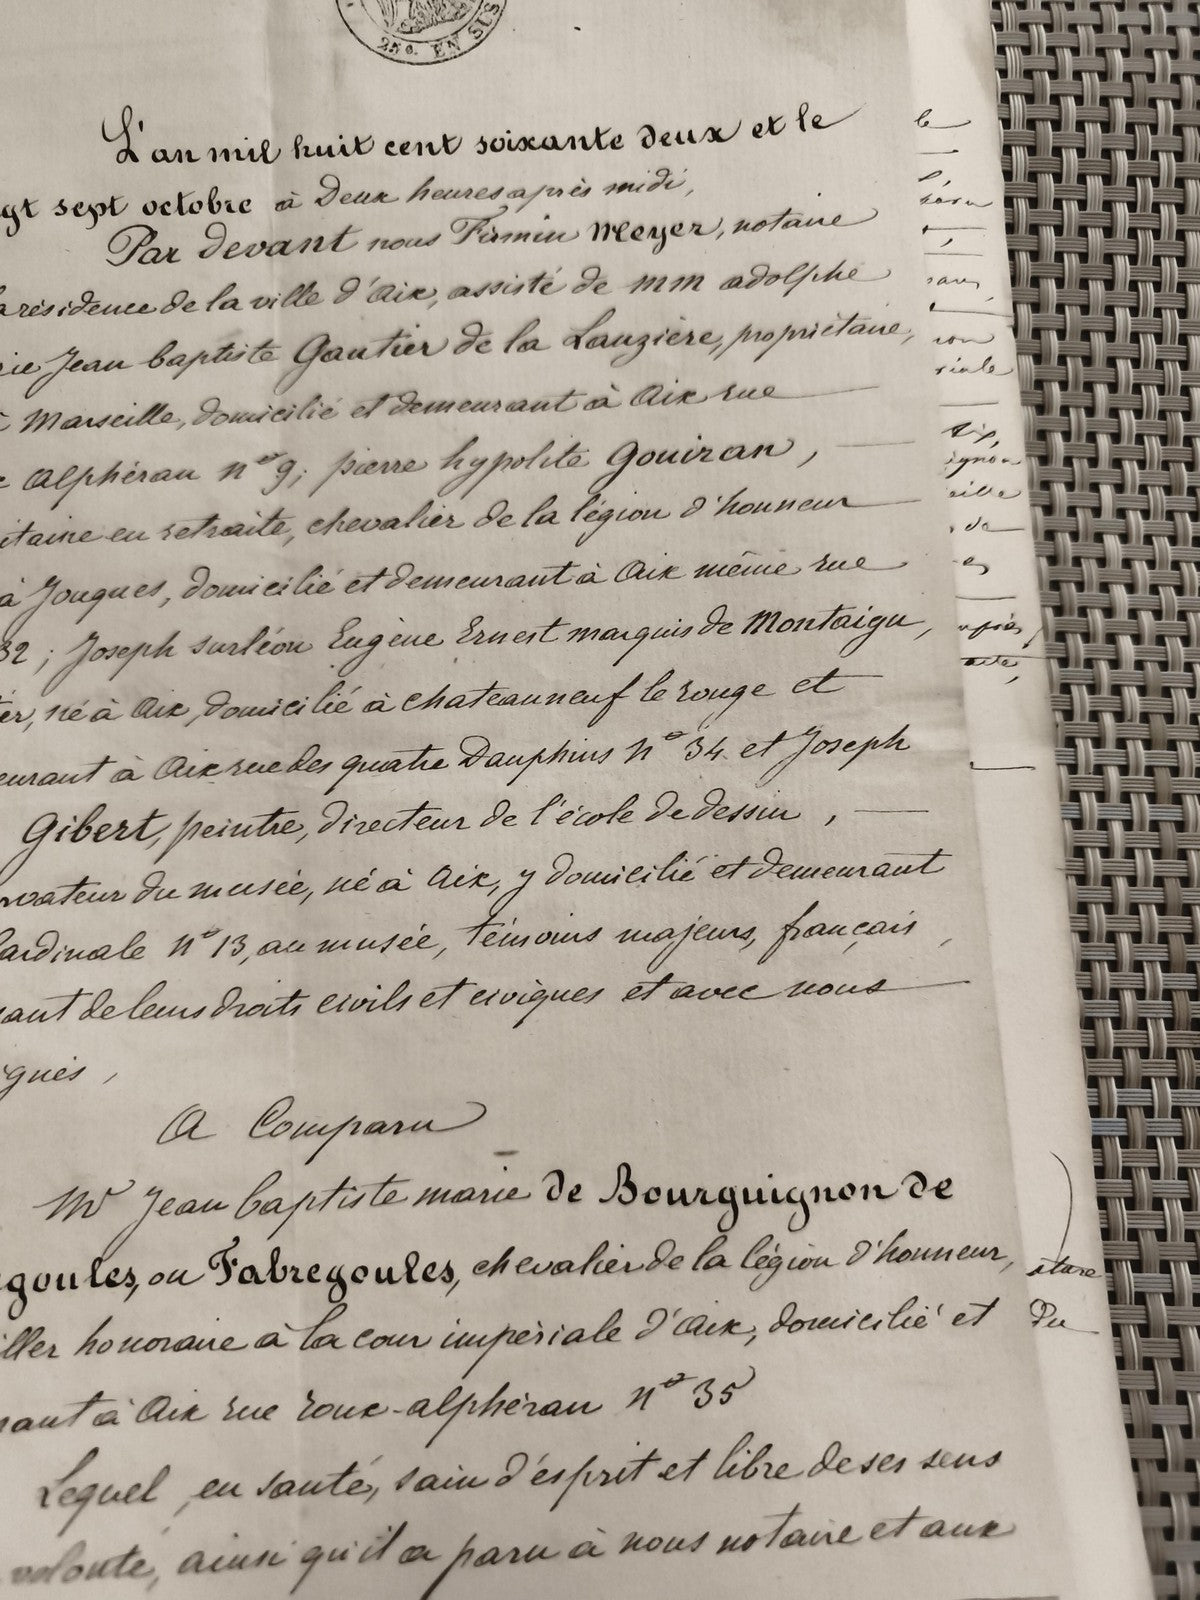 25 c. EN SUS
L'an mil huit cent soixante deux et le
gt sept octobre à Deux heures après midi,
Par devant nous Firmin Meyer, notaire
a résidence de la ville d'aix, assisté de mm adolphe
ie Jean baptiste Gautier de la Lauzière, propriétaire,
Marseille, domicilié et demeurant à Aix rue
Alphéran n° 9; pierre hypolite Gouiran,
itaine en retraite, chevalier de la légion d'honneur
à Jouques, domicilié et demeurant à Aix même rue
32; Joseph surléon Eugène Ernest marquis de Montaigu,
er, né à Aix, domicilié à chateauneuf le rouge et
eurant à Aix rue des quatre Dauphins n° 34 et Joseph
Gibert, peintre, directeur de l'école de dessin,
rvateur du musée, né à Aix, y domicilié et demeurant
Cardinale n° 13, au musée, témoins majeurs, français,
sant de leurs droits civils et civiques et avec nous
ignés,
A Comparu
Mr Jean baptiste marie de Bourguignon de
goules, ou Fabregoules, chevalier de la légion d'honneur,
iller honoraire à la cour impériale d'Aix, domicilié et
rant à Aix rue roux-alphéran n° 35
Lequel, en santé, sain d'esprit et libre de ses sens
volonté, ainsi qu'il a paru à nous notaire et aux
le
ron
riale
ignon
eille
de
es
après
acte,
Du